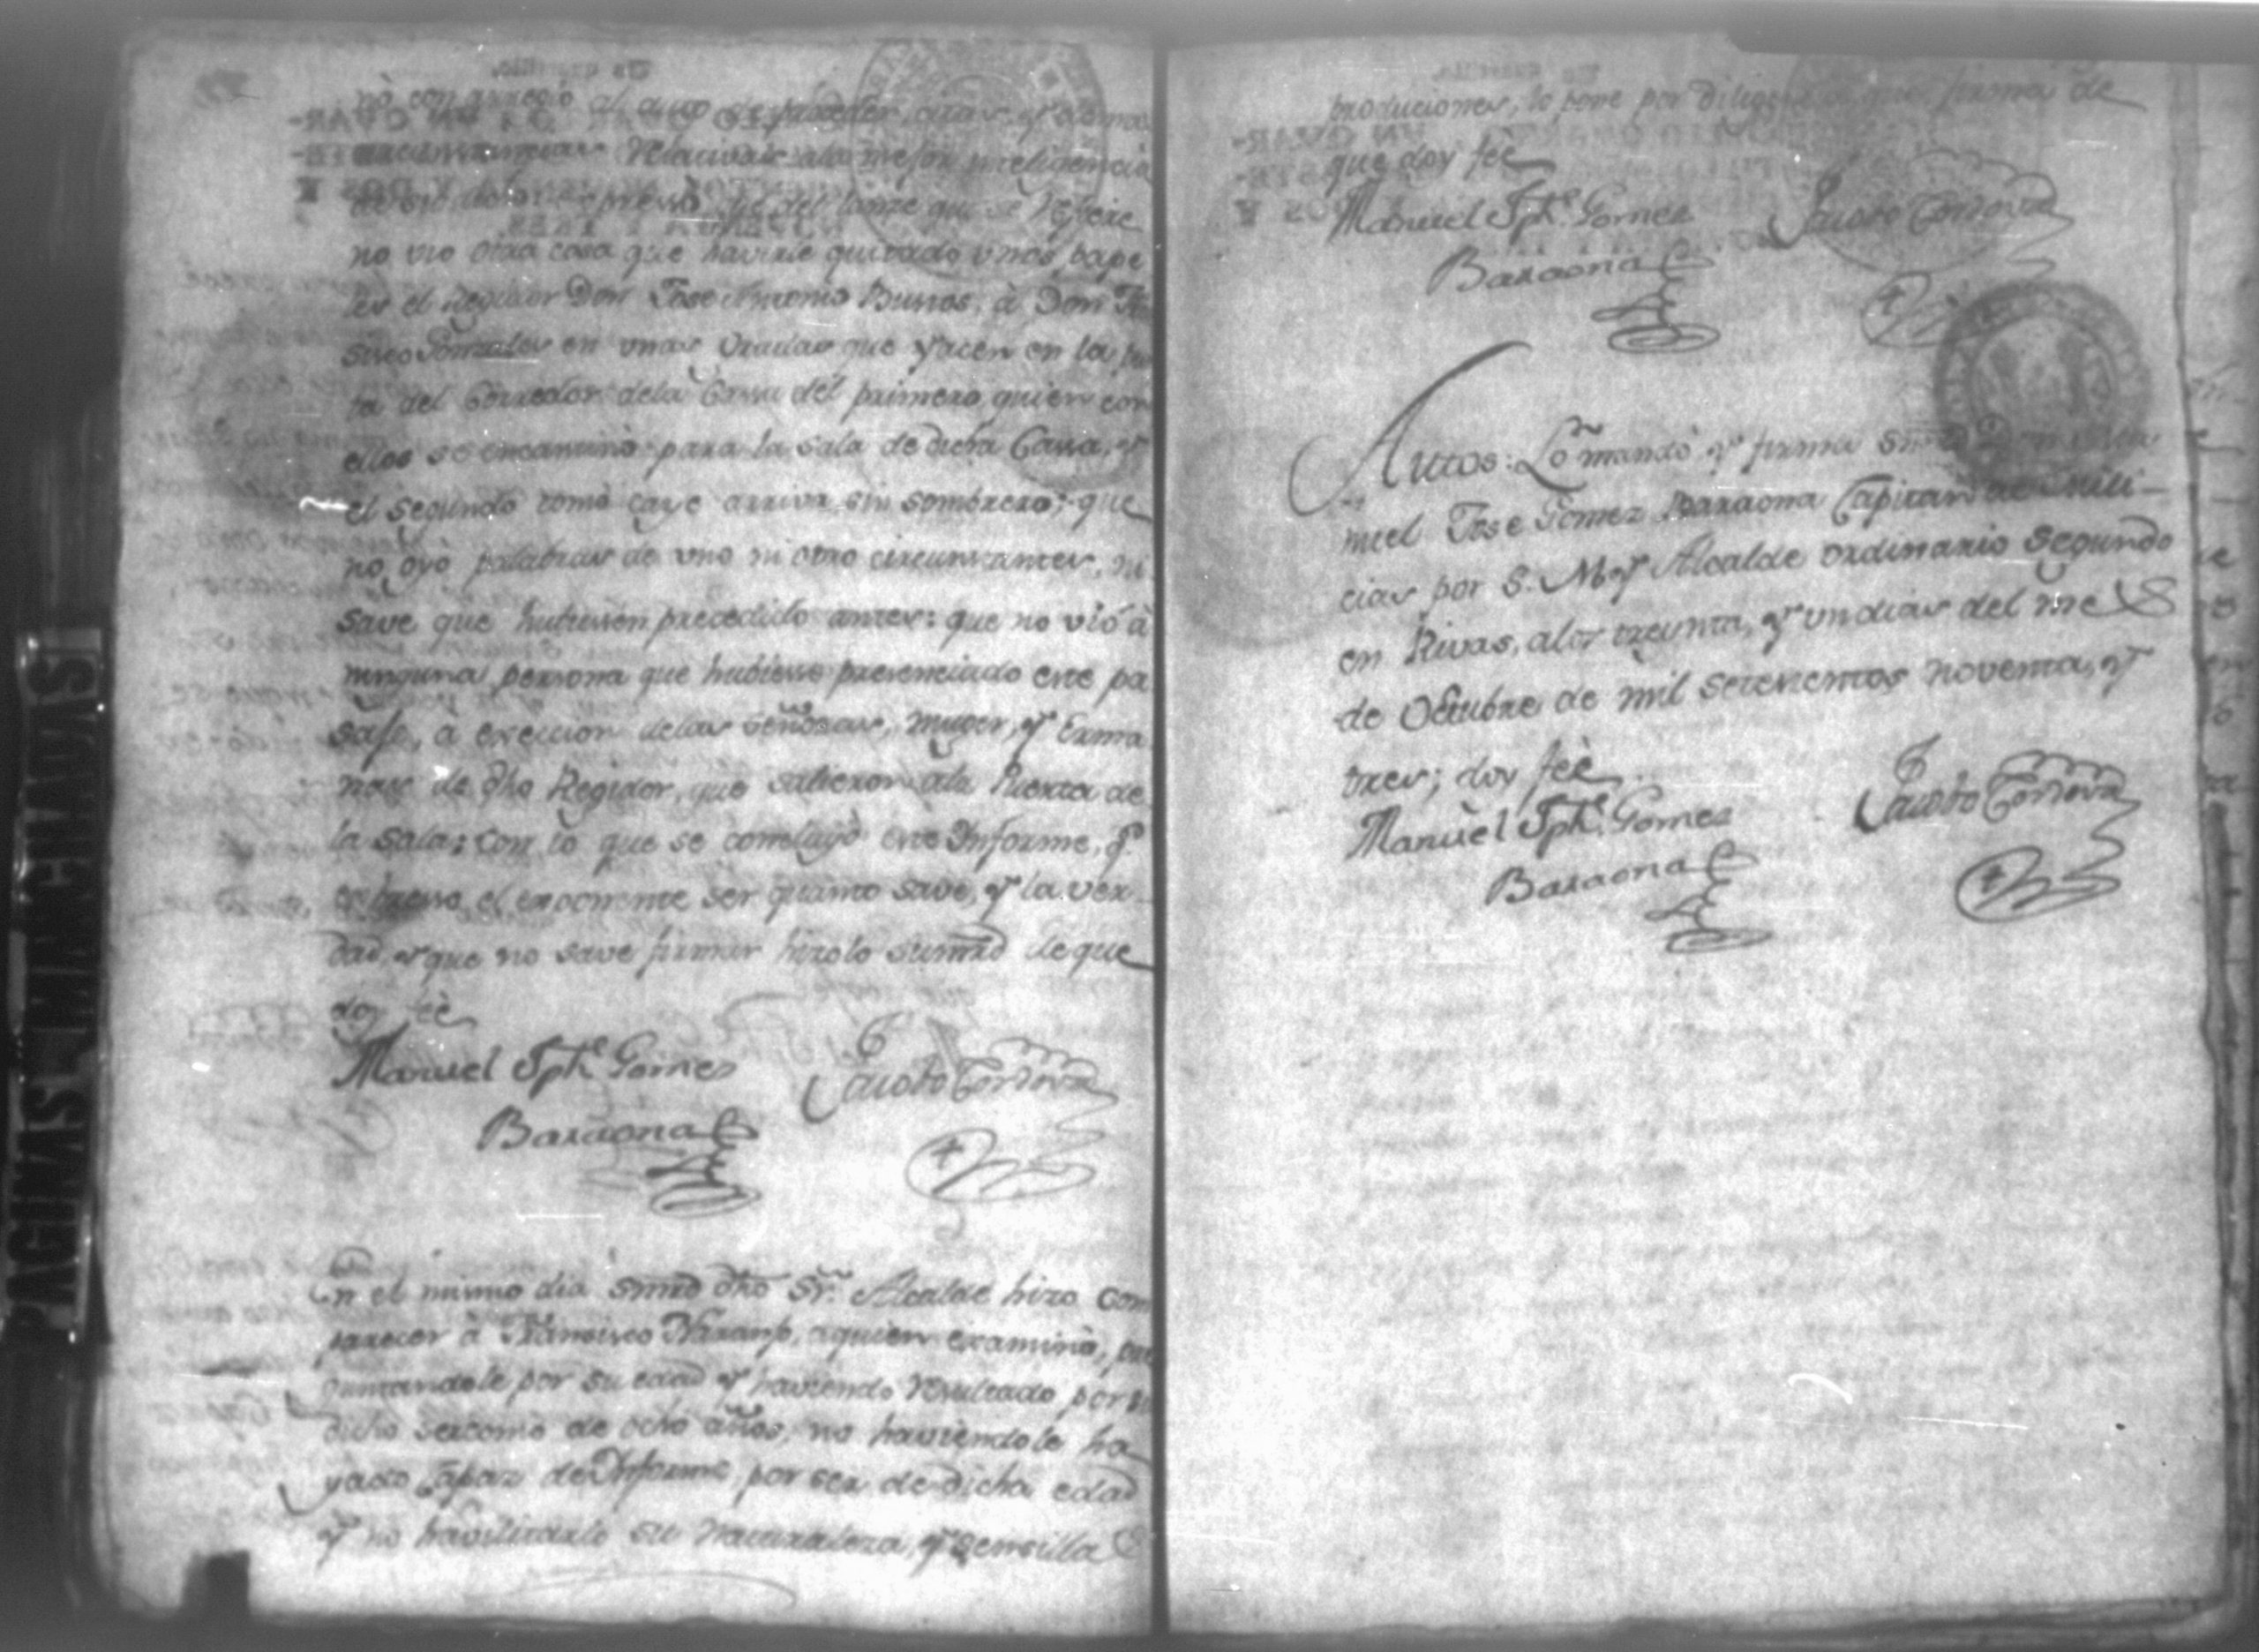 no con arreglo al auto de proceder, citas y demas
circunstancias relativas a la mejor inteligencia
de su dicho: expresó que del lanze que se refiere
no vio otra cosa que haverle quitado unos pape
les el Regidor Don Jose Antonio Bustos, à Don
Gonzales en unas Gradas que yacen en la
ta del Corredor dela Cassa del primero, quien con
ellos se encaminò para la sala de dicha Cassa, y
el segundo tomò caye arriva sin sombrero; que
no oyò palabras de uno ni otro circunstantes, ni
save que hubiesen precedido antes: que no vió à
ninguna persona que hubiese presenciado este pa
saje, à excecion delas señoras, muger, y Erma
nas de dho Regidor, que salieron ala Puerta de
la sala; con lo que se concluyò este Informe, q.e
expresa el exponente ser quanto save, y la ver
dad, y que no save firmar hizolo sumrd de que
doy feè
Manuel Jph.e Gomez
Baraona
Fausto Cordova
En el mismo dia sumrd dho Sr. Alcalde hizo com
parecer à Francisco Naranjo, aquien examinò, pre
guntandole por su edad y haviendo resultado por su
dicho ser como de ocho años, no haviendole ha
yado Capaz de Informe, por ser de dicha edad
y no havilitarle su naturaleza, y sencilla
PAGINAS MANCHADAS
produciones, lo pone por diligencia, que firma de
que doy feè
Manuel Jph.e Gomez
Baraona
Fausto Cordova
Autos: Lo mandò y firma
nuel Jose Gomez Baraona Capitan de Mili-
cias por S. M. y Alcalde ordinario segundo
en Rivas, alos treinta, y un dias del mes
de Octubre de mil setecientos noventa, y
tres; doy feè
Manuel Jph.e Gomez
Baraona
Fausto Cordova